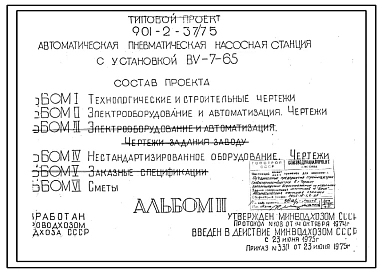 ТИПОВОЙ ПРОЕКТ
901-2-37/75
АВТОМАТИЧЕСКАЯ ПНЕВМАТИЧЕСКАЯ НАСОСНАЯ СТАНЦИЯ
С УСТАНОВКОЙ ВУ-7-65
СОСТАВ ПРОЕКТА
ЬБОМ I ТЕХНОЛОГИЧЕСКИЕ И СТРОИТЕЛЬНЫЕ ЧЕРТЕЖИ
ЬБОМ II ЭЛЕКТРООБОРУДОВАНИЕ И АВТОМАТИЗАЦИЯ. ЧЕРТЕЖИ
ЬБОМ III ЭЛЕКТРООБОРУДОВАНИЕ И АВТОМАТИЗАЦИЯ.
ЧЕРТЕЖИ ЗАДАНИЯ ЗАВОДУ
ЬБОМ IV НЕСТАНДАРТИЗИРОВАННОЕ ОБОРУДОВАНИЕ. ЧЕРТЕЖИ
ЬБОМ V ЗАКАЗНЫЕ СПЕЦИФИКАЦИИ
ЬБОМ VI СМЕТЫ
АЛЬБОМ III
РАБОТАН
РОВОДХОЗОМ
ДХОЗА СССР
УТВЕРЖДЕН МИНВОДХОЗОМ СССР
ПРОТОКОЛ №1108 ОТ 14 ОКТЯБРЯ 1974Г
ВВЕДЕН В ДЕЙСТВИЕ МИНВОДХОЗОМ СССР
С 23 ИЮНЯ 1975Г
ПРИКАЗ № 331 ОТ 23 ИЮНЯ 1975Г